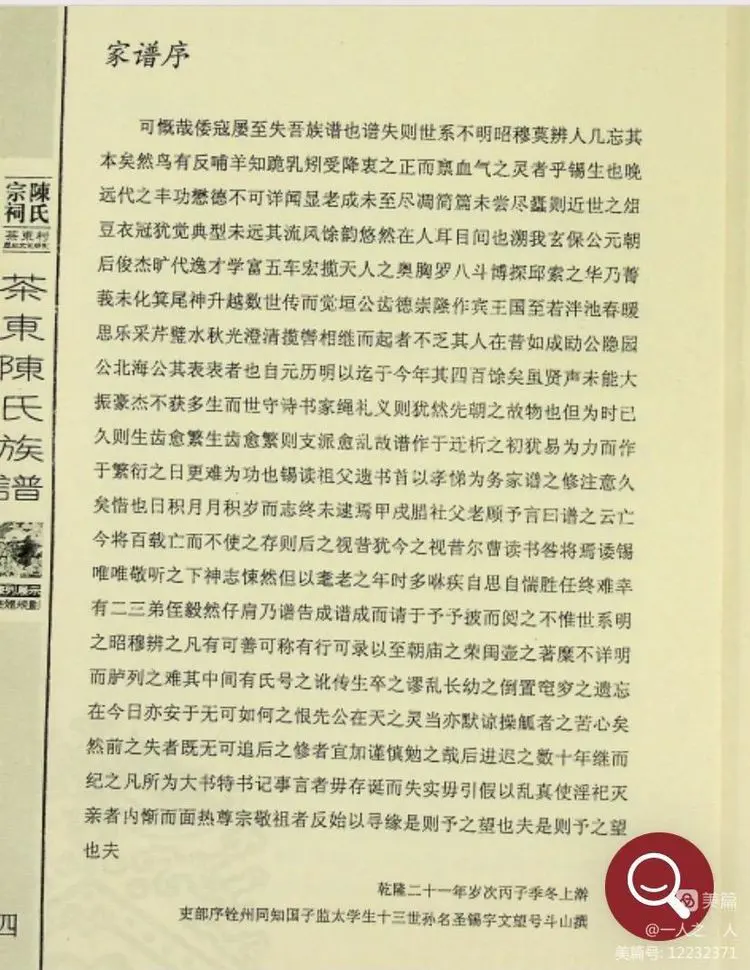 家谱序
可慨哉倭寇屡至失吾族谱也谱失则世系不明昭穆莫辨人几忘其
本矣然鸟有反哺羊知跪乳矧受降衷之正而禀血气之灵者乎锡生也晚
远代之丰功懋德不可详闻显老成未至尽凋简篇未尝尽蠹则近世之俎
豆衣冠犹觉典型未远其流风馀韵悠然在人耳目间也溯我玄保公元朝
后俊杰旷代逸才学富五车宏揽天人之奥胸罗八斗博探邱索之华乃菁
莪未化箕尾神升越数世传而觉垣公齿德崇隆作宾王国至若泮池春暖
思乐采芹璧水秋光澄清揽辔相继而起者不乏其人在昔如成励公隐园
公北海公其表表者也自元历明以迄于今年其四百馀矣虽贤声未能大
振豪杰不获多生而世守诗书家绳礼义则犹然先朝之故物也但为时已
久则生齿愈繁生齿愈繁则支派愈乱故谱作于迁析之初犹易为力而作
于繁衍之日更难为功也锡读祖父遗书首以孝悌为务家谱之修注意久
矣惜也日积月月积岁而志终未逮焉甲戌腊社父老顾予言曰谱之云亡
今将百载亡而不使之存则后之视昔犹今之视昔尔曹读书咎将焉诿锡
唯唯敬听之下神志悚然但以耄老之年时多咻疾自思自惴胜任终难幸
有二三弟侄毅然仔肩乃谱告成谱成而请于予予披而阅之不惟世系明
之昭穆辨之凡有可善可称有行可录以至朝庙之荣闺壶之著糜不详明
而胪列之难其中间有氏号之讹传生卒之谬乱长幼之倒置窀穸之遗忘
在今日亦安于无可如何之恨先公在天之灵当亦默谅操觚者之苦心矣
然前之失者既无可追后之修者宜加谨慎勉之哉后进迟之数十年继而
纪之凡所为大书特书记事言者毋存诞而失实毋引假以乱真使淫祀灭
亲者内惭而面热尊宗敬祖者反始以寻缘是则予之望也夫是则予之望
也夫
乾隆二十一年岁次丙子季冬上澣
吏部序铨州同知国子监太学生十三世孙名圣锡字文望号斗山撰
陳氏
宗祠
茶東村
茶東陳氏族譜
四
美篇
@一人之 人
美篇号: 12232371